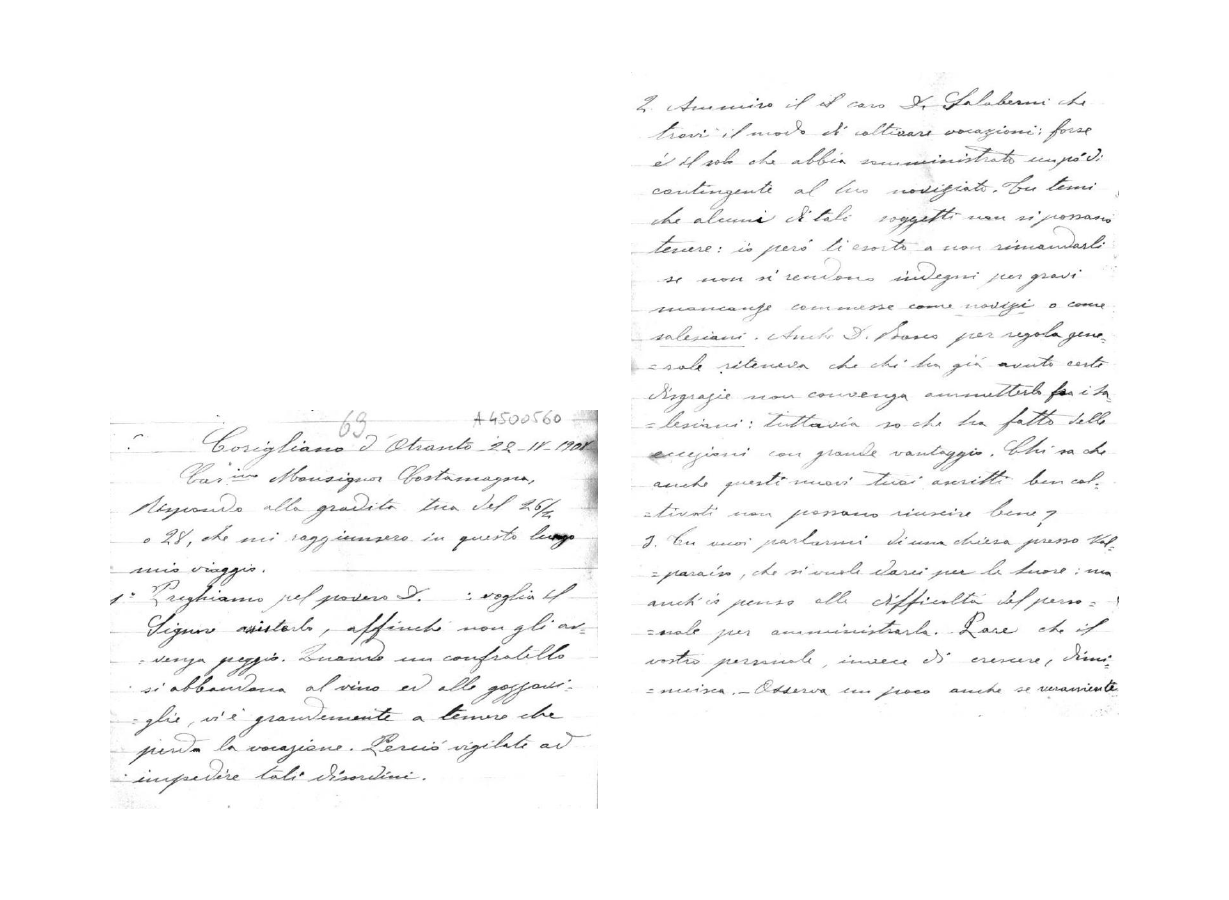 69
A4500560
Corigliano d'Otranto 22-IV-1901
Car.mo Monsignor Costamagna,
Rispondo alla gradita tua del 26/2
o 28, che mi raggiunsero in questo lungo
mio viaggio.
1° Preghiamo pel povero D. : voglia il
Signore aiutarlo, affinché non gli av=
=venga peggio. Quando un confratello
si abbandona al vino ed alle gozzovi=
=glie, v'è grandemente a temere che
perda la vocazione. Perciò vigilate ad
impedire tali disordini.
2. Ammiro il il caro D. Salaberri che
trovi il modo di coltivare vocazioni; forse
è il solo che abbia somministrato un po' di
contingente al tuo noviziato. Tu temi
che alcuni di tali soggetti non si possano
tenere: io però ti esorto a non rimandarli
se non si rendono indegni per gravi
mancanze commesse come novizi o come
salesiani. Anche D. Bosco per regola gene=
=rale riteneva che chi ha già avuto certe
disgrazie non convenga ammetterlo fra i Sa
=lesiani: tuttavia so che ha fatto delle
eccezioni con grande vantaggio. Chi sa che
anche questi nuovi tuoi ascritti ben col=
=tivati non possano riuscire bene?
3. Tu vuoi parlarmi di una chiesa presso Val=
=paraíso, che si vuole darci per le Suore: ma
anch'io penso alle difficoltà del perso=
=nale per amministrarla. Pare che il
vostro personale, invece di crescere, dimi=
=nuisca. _ Osserva un poco anche se veramente